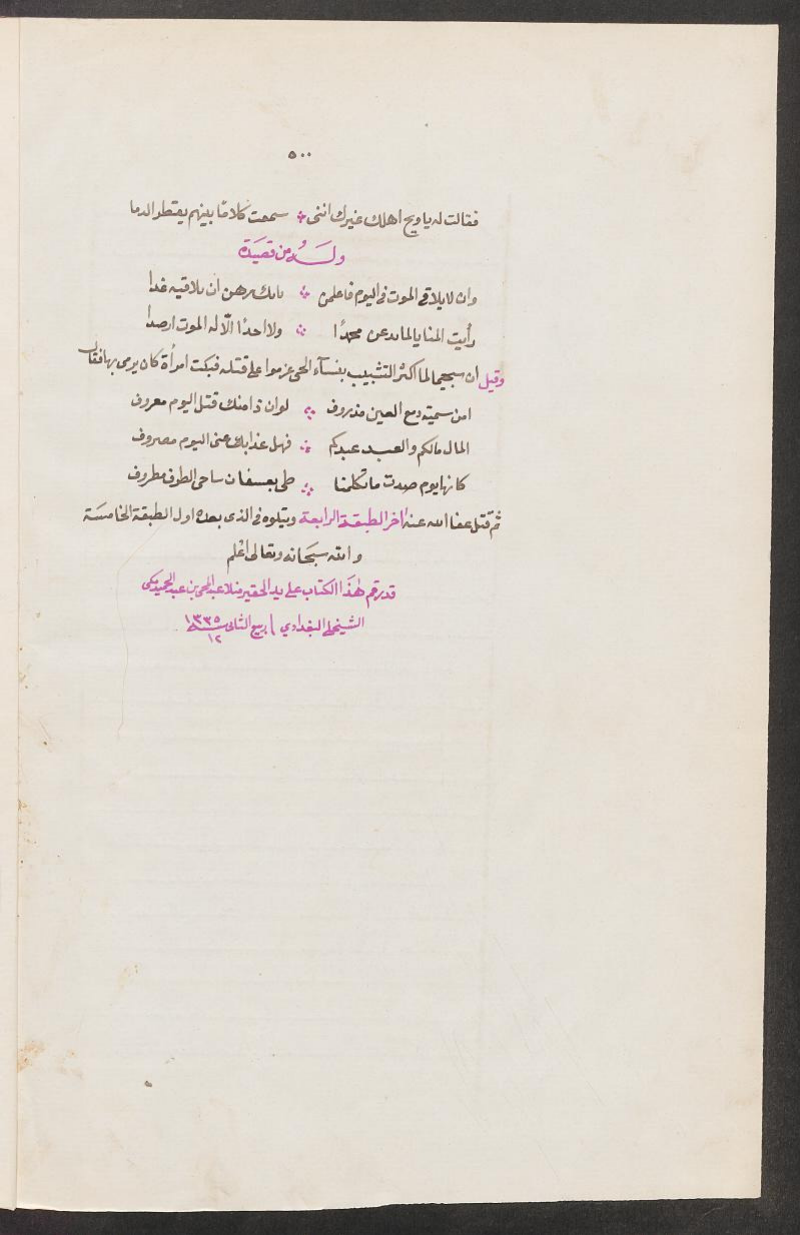 ٥٠٠
فقالت له يا ويح اهلك غيرك اننى ؞ سمعت كلامًا بينهم يقطر الدما
وله من قصيدة
وان لا يلاقى الموت فى اليوم فاعلمن ؞ بانك رهن ان يلاقيه غدا
رأيت المنايا لم يدعن محمدًا ؞ ولا احدًا الّا له الموت ارصدا
وقيل ان سحيما لما اكثر التشبيب بنسآء الحى عزموا على قتله فبكت امرأة كان يرمى بها فقال
امن سمية دمع العين مذروف ؞ لو ان ذا منك قبل اليوم معروف
المال مالكم والعبد عبدكم ؞ فهل عذابك عنى اليوم مصروف
كانها يوم صدت ما تكلمنا ؞ ظبى بعسفان ساجى الطرف مطروف
ثم قتل عفا الله عنه اخر الطبقة الرابعة ويتلوه فى الذى بعده اول الطبقة الخامسة
والله سبحانه وتعالى اعلم
قد رقم هٰذا الكتاب على يد الحقير منلا عبد الحى بن عبد الحميد بكى
الشيخلى البغدادي ربيع الثانى ١٣٣٥
١٢